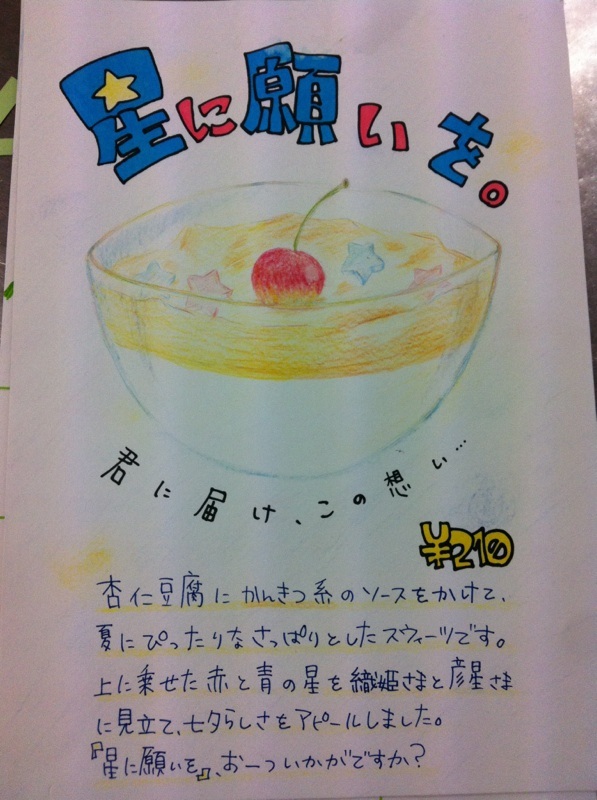 星に願いを。
君に届け、この想い…
¥210
杏仁豆腐にかんきつ系のソースをかけて、
夏にぴったりなさっぱりとしたスウィーツです。
上に乗せた赤と青の星を織姫さまと彦星さま
に見立て、七夕らしさをアピールしました。
『星に願いを』、お一ついかがですか？